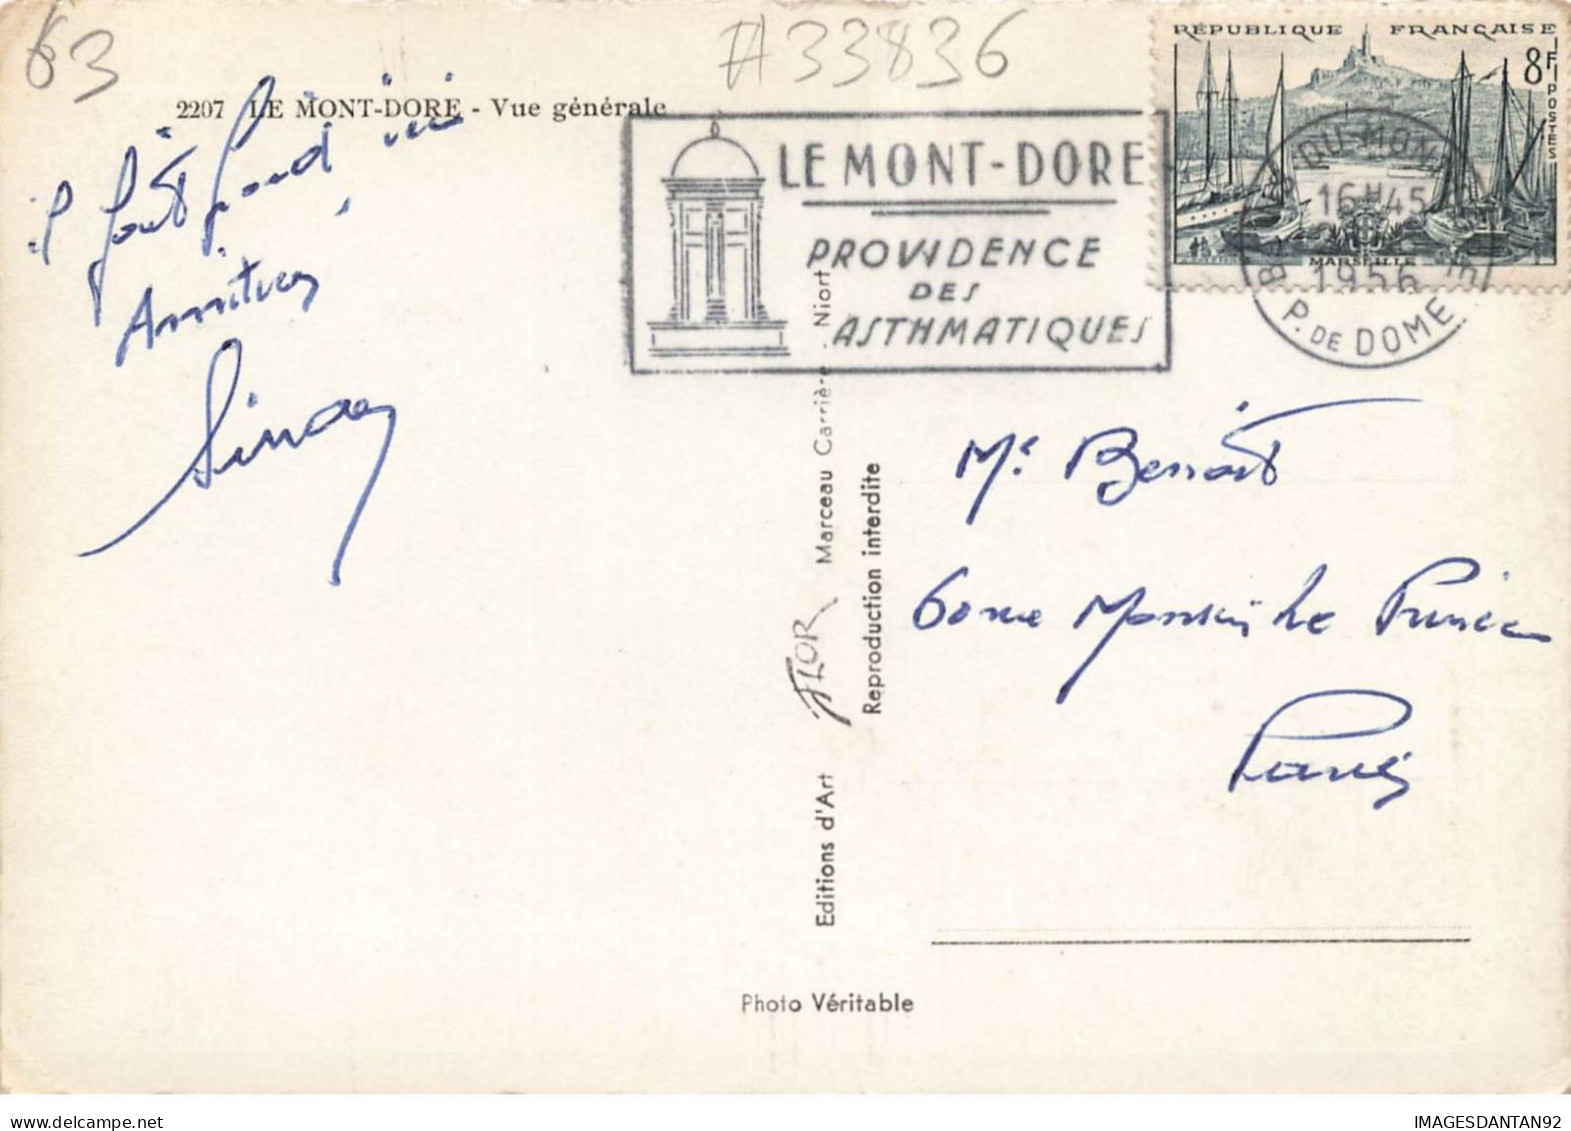 63
#33836
2207 LE MONT-DORE - Vue générale
il fait froid ici
Amitiés
LE MONT-DORE
PROVIDENCE
DES
ASTHMATIQUES
RÉPUBLIQUE FRANÇAISE
8F
POSTES
MARSEILLE
16H45
1956
P. DE DOME
Mr Benoit
60 rue Monsieur le Prince
Paris
Editions d'Art FLOR Marceau Carrière . Niort
Reproduction interdite
Photo Véritable
IMAGESDANTAN92